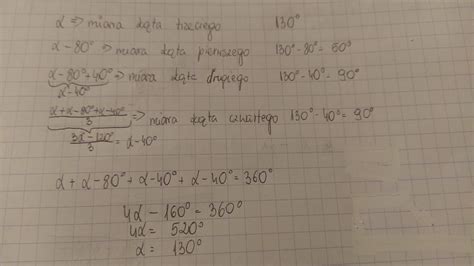 α => miara kąta trzeciego 130°
α - 80° => miara kąta pierwszego 130° - 80° = 50°
α - 80° + 40° => miara kąta drugiego 130° - 40° = 90°
α - 40°
(α + α - 80° + α - 40°)/3 => miara kąta czwartego 130° - 40° = 90°
(3α - 120°)/3 = α - 40°
α + α - 80° + α - 40° + α - 40° = 360°
4α - 160° = 360°
4α = 520°
α = 130°